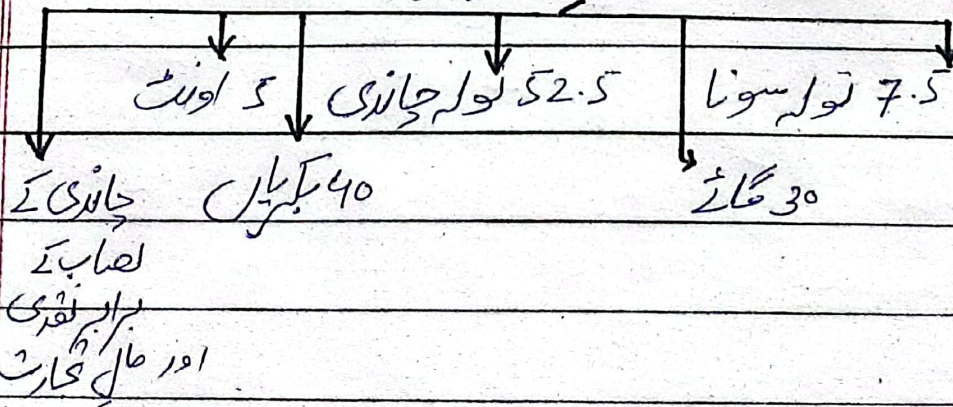 7.5 تولہ سونا 52.5 تولہ چاندی 5 اونٹ
30 گائے 40 بکریاں چاندی کے
نصاب کے
برابر نقدی
اور مال تجارت